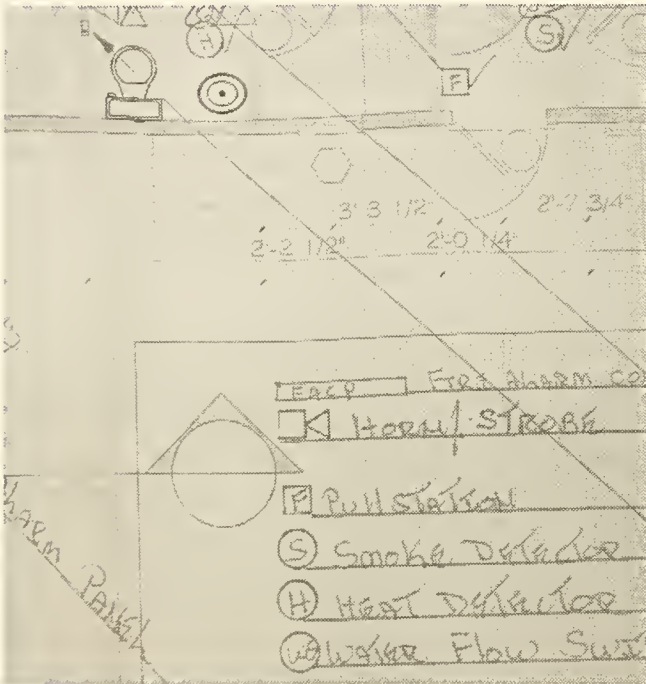 H
S
F
3' 3 1/2"
2'-7 3/4"
2'-2 1/2"
2'-0 1/4"
FACP FIRE ALARM CO
HORN/STROBE
F PULL STATION
S SMOKE DETECTOR
H HEAT DETECTOR
WATER FLOW SWIT
ALARM PANEL